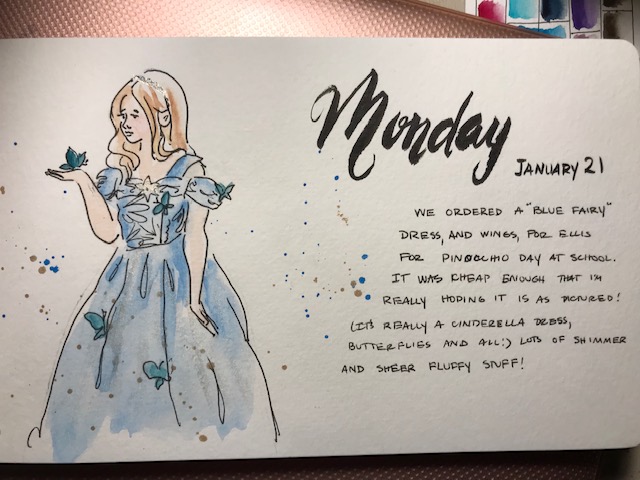 Monday
JANUARY 21
WE ORDERED A "BLUE FAIRY"
DRESS, AND WINGS, FOR ELLIS
FOR PINOCCHIO DAY AT SCHOOL.
IT WAS CHEAP ENOUGH THAT I'M
REALLY HOPING IT IS AS PICTURED!
(IT'S REALLY A CINDERELLA DRESS,
BUTTERFLIES AND ALL!) LOTS OF SHIMMER
AND SHEER FLUFFY STUFF!